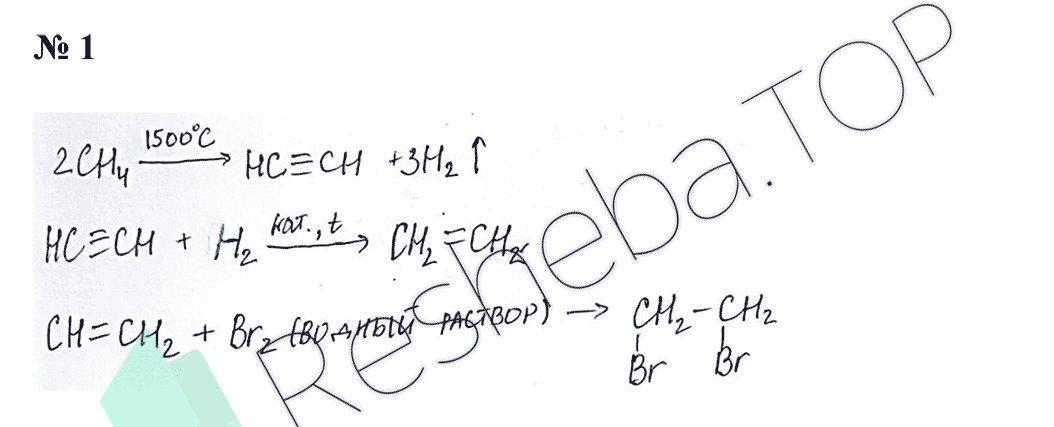 № 1
2CH₄ —1500°C→ HC≡CH + 3H₂ ↑
HC≡CH + H₂ —кат., t→ CH₂=CH₂
CH=CH₂ + Br₂ (ВОДНЫЙ РАСТВОР) → CH₂–CH₂
Br Br
Resheba.TOP